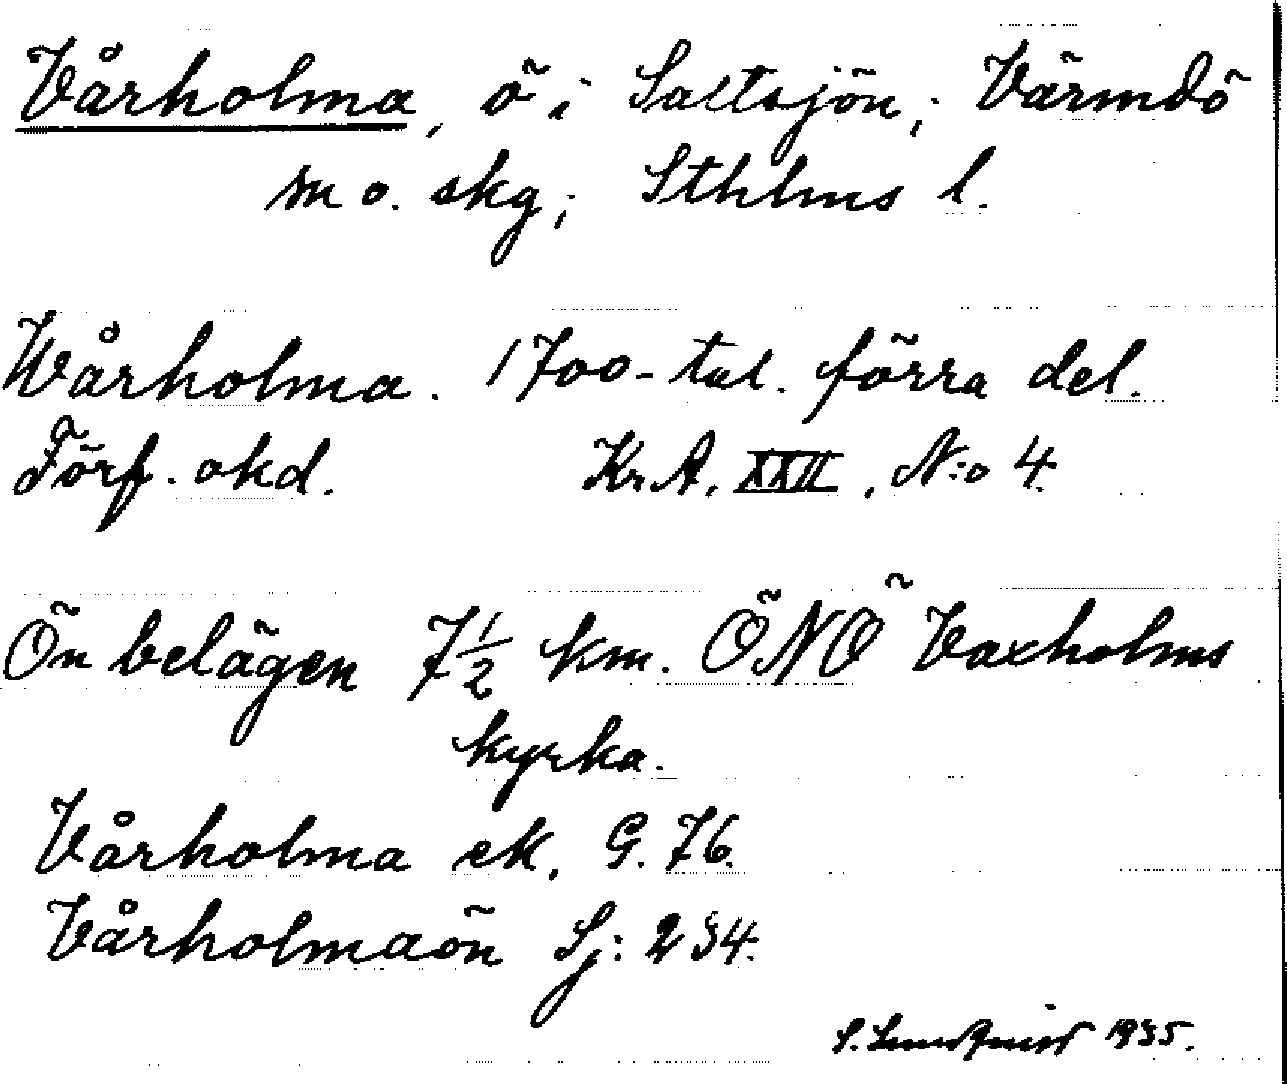 Vårholma, ö i Saltsjön; Värmdö
m o. skg; Sthlms l.
Wårholma. 1700-tal. förra del.
Förf. okd. Kr.A. XXII, N:o 4.
Ön belägen 7½ km. ÖNÖ Vaxholms
kyrka.
Vårholma ek. G. 76.
Vårholmaön Sj: 234.
S. Lundquist 1935.